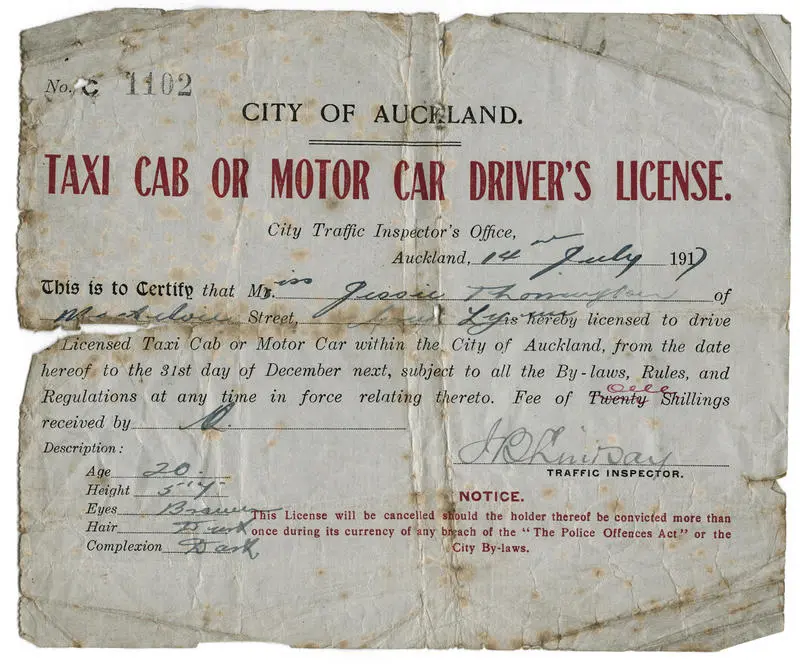 No. C 1102
CITY OF AUCKLAND.
TAXI CAB OR MOTOR CAR DRIVER'S LICENSE.
City Traffic Inspector's Office,
Auckland, 14 July 1917
This is to Certify that Miss Jessie Thorrington of
Street, is hereby licensed to drive
Licensed Taxi Cab or Motor Car within the City of Auckland, from the date
hereof to the 31st day of December next, subject to all the By-laws, Rules, and
Regulations at any time in force relating thereto. Fee of Twenty One Shillings
received by
Description:
Age 20.
Height 5-4
Eyes Brown
Hair Dark
Complexion Dark
J B Lindsay
TRAFFIC INSPECTOR.
NOTICE.
This License will be cancelled should the holder thereof be convicted more than
once during its currency of any breach of the "The Police Offences Act" or the
City By-laws.